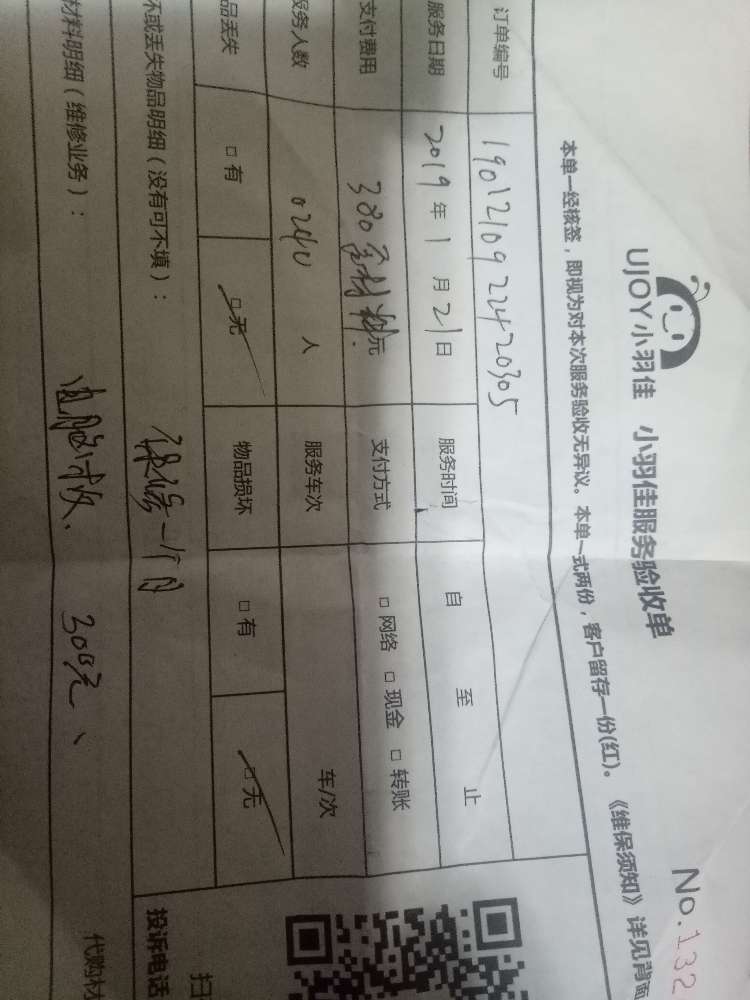 UJOY小羽佳 小羽佳服务验收单
No.132
本单一经核签，即视为对本次服务验收无异议。本单一式两份，客户留存一份(红)。《维保须知》详见背面
订单编号 190121092242030​5
服务日期 2019年1月21日 服务时间 自 至 止
支付费用 380 材料元 支付方式 □网络 □现金 □转账
服务人数 人 服务车次 车/次
品丢失 □有 □无 物品损坏 □有 □无
坏或丢失物品明细（没有可不填）： 保修一个月
投诉电话
材料明细（维修业务）： 电脑 300元、
代购材
扫